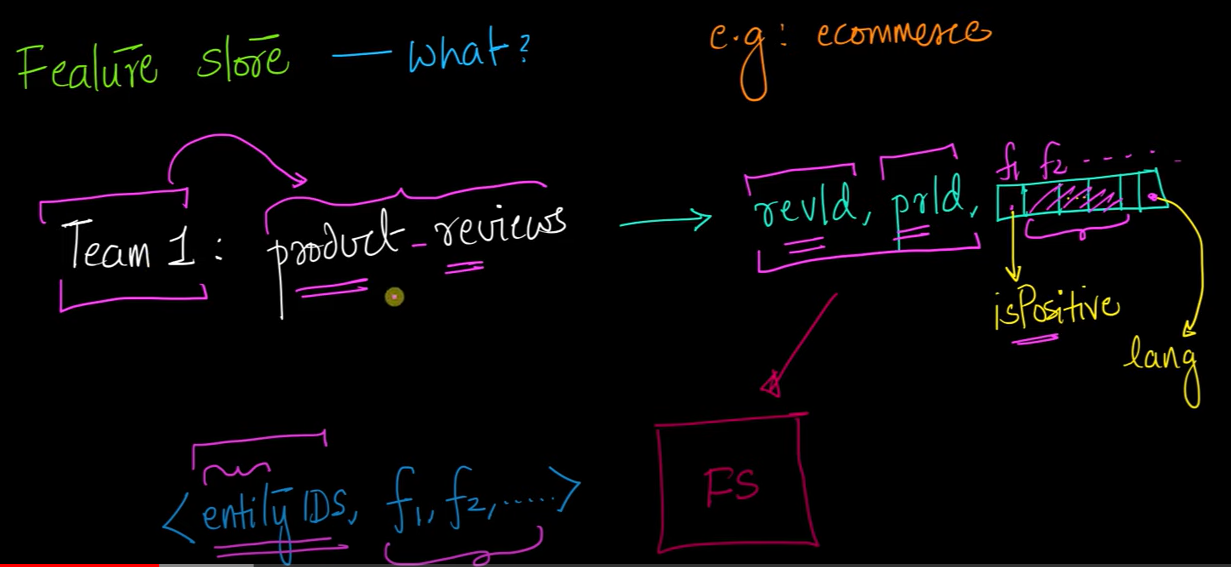 Feature store — what?
e.g: ecommerce
f1 f2 . . . . . .
Team 1: product-reviews → revId, prId,
isPositive
lang
FS
<entity IDS, f1, f2, ......>